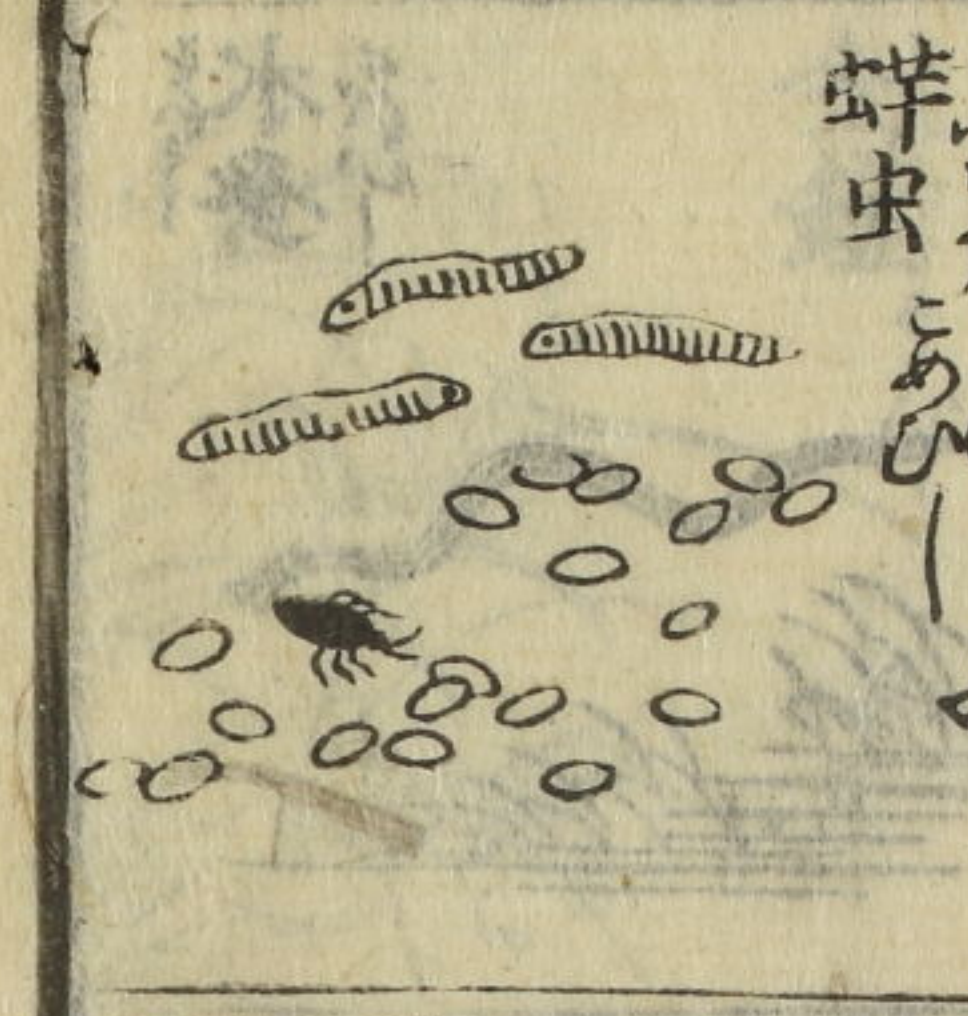 蛘虫 こめむし